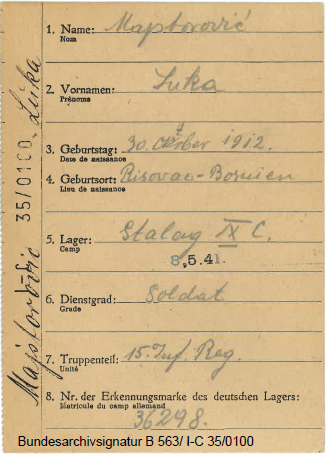 1. Name: Majstorović
Nom
2. Vornamen: Luka
Prénoms
3. Geburtstag: 30. Oktober 1912.
Date de naissance
4. Geburtsort: Risovac-Bosnien
Lieu de naissance
5. Lager: Stalag IX C.
Camp
8.5.41.
6. Dienstgrad: Soldat
Grade
7. Truppenteil: 15. Inf. Reg.
Unité
8. Nr. der Erkennungsmarke des deutschen Lagers:
Matricule du camp allemand
36298.
Majstorović 35/0100 Luka
Bundesarchivsignatur B 563/ I-C 35/0100